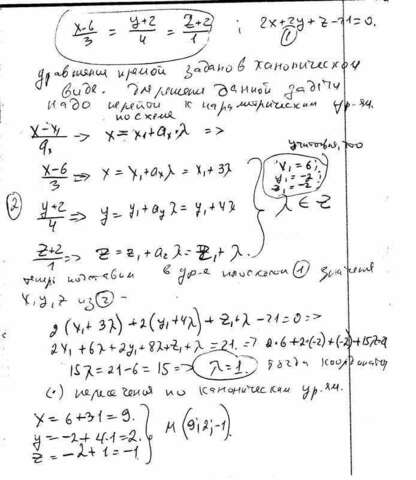 x-6/3 = y+2/4 = z+2/1 ; 2x+2y+z-21=0.
①
уравнение прямой задано в каноническом
виде. Для решения данной задачи
надо перейти к параметрическим ур-ям.
по схеме
x-x₁/aₓ => x=x₁+aₓ·λ =>
учитывая, что
x-6/3 => x=x₁+aₓλ=x₁+3λ
x₁=6;
y₁=-2
z₁=-2
② y+2/4 => y=y₁+a_yλ=y₁+4λ
λ∈Z
z+2/1 => z=z₁+a_zλ=z₁+λ.
теперь подставим в ур-е плоскости ① значения
x,y,z из ② -
2(x₁+3λ)+2(y₁+4λ)+z₁+λ-21=0=>
2x₁+6λ+2y₁+8λ+z₁+λ=21.=> 2·6+2·(-2)+(-2)+15λ=21
15λ=21-6=15=> λ=1. тогда координаты
(·) пересечения по каноническим ур-ям.
x=6+3·1=9.
y=-2+4·1=2. M(9;2;-1).
z=-2+1=-1